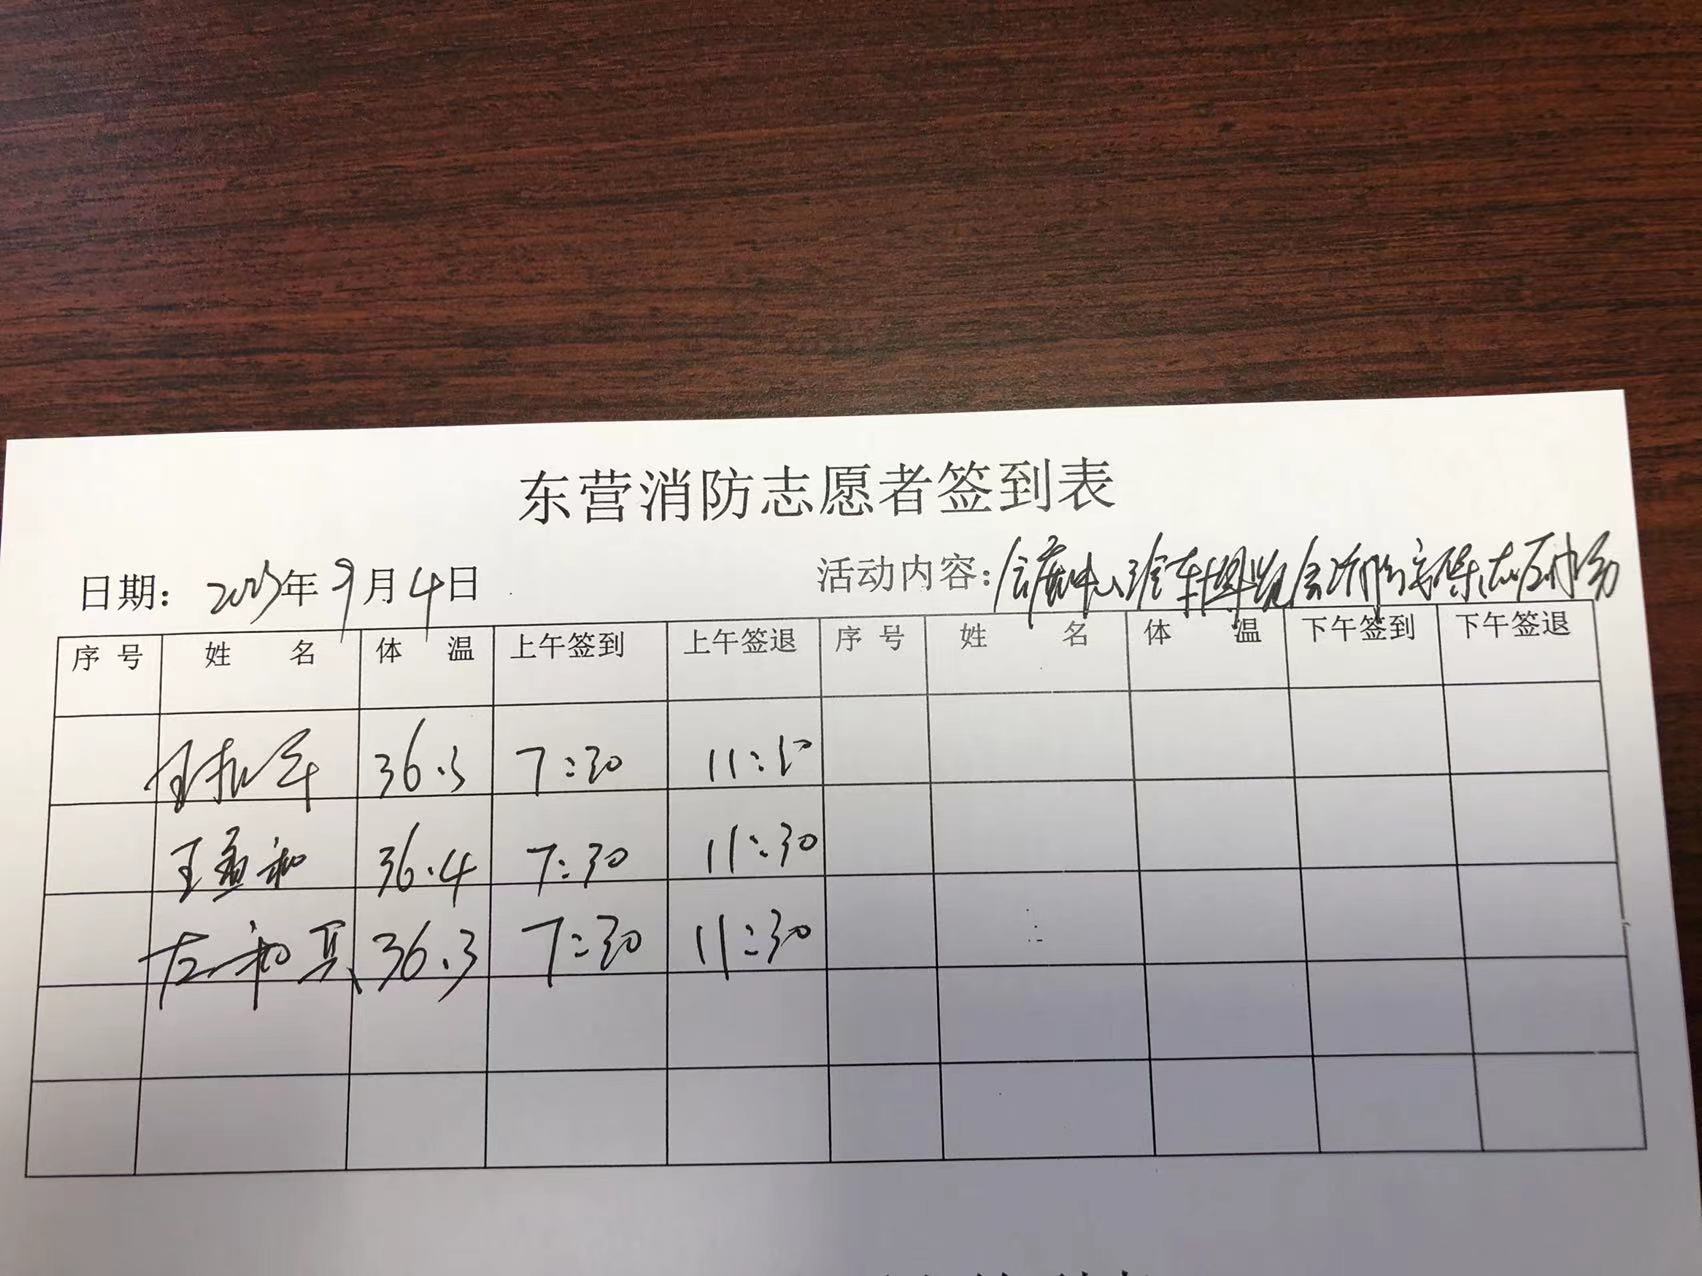 东营消防志愿者签到表
日期: 2023年9月4日 活动内容: 会展中心汽车博览会消防安保志愿活动
序号 姓名 体温 上午签到 上午签退 序号 姓名 体温 下午签到 下午签退
王振军 36.3 7:30 11:30
王孟和 36.4 7:30 11:30
左和具 36.3 7:30 11:30